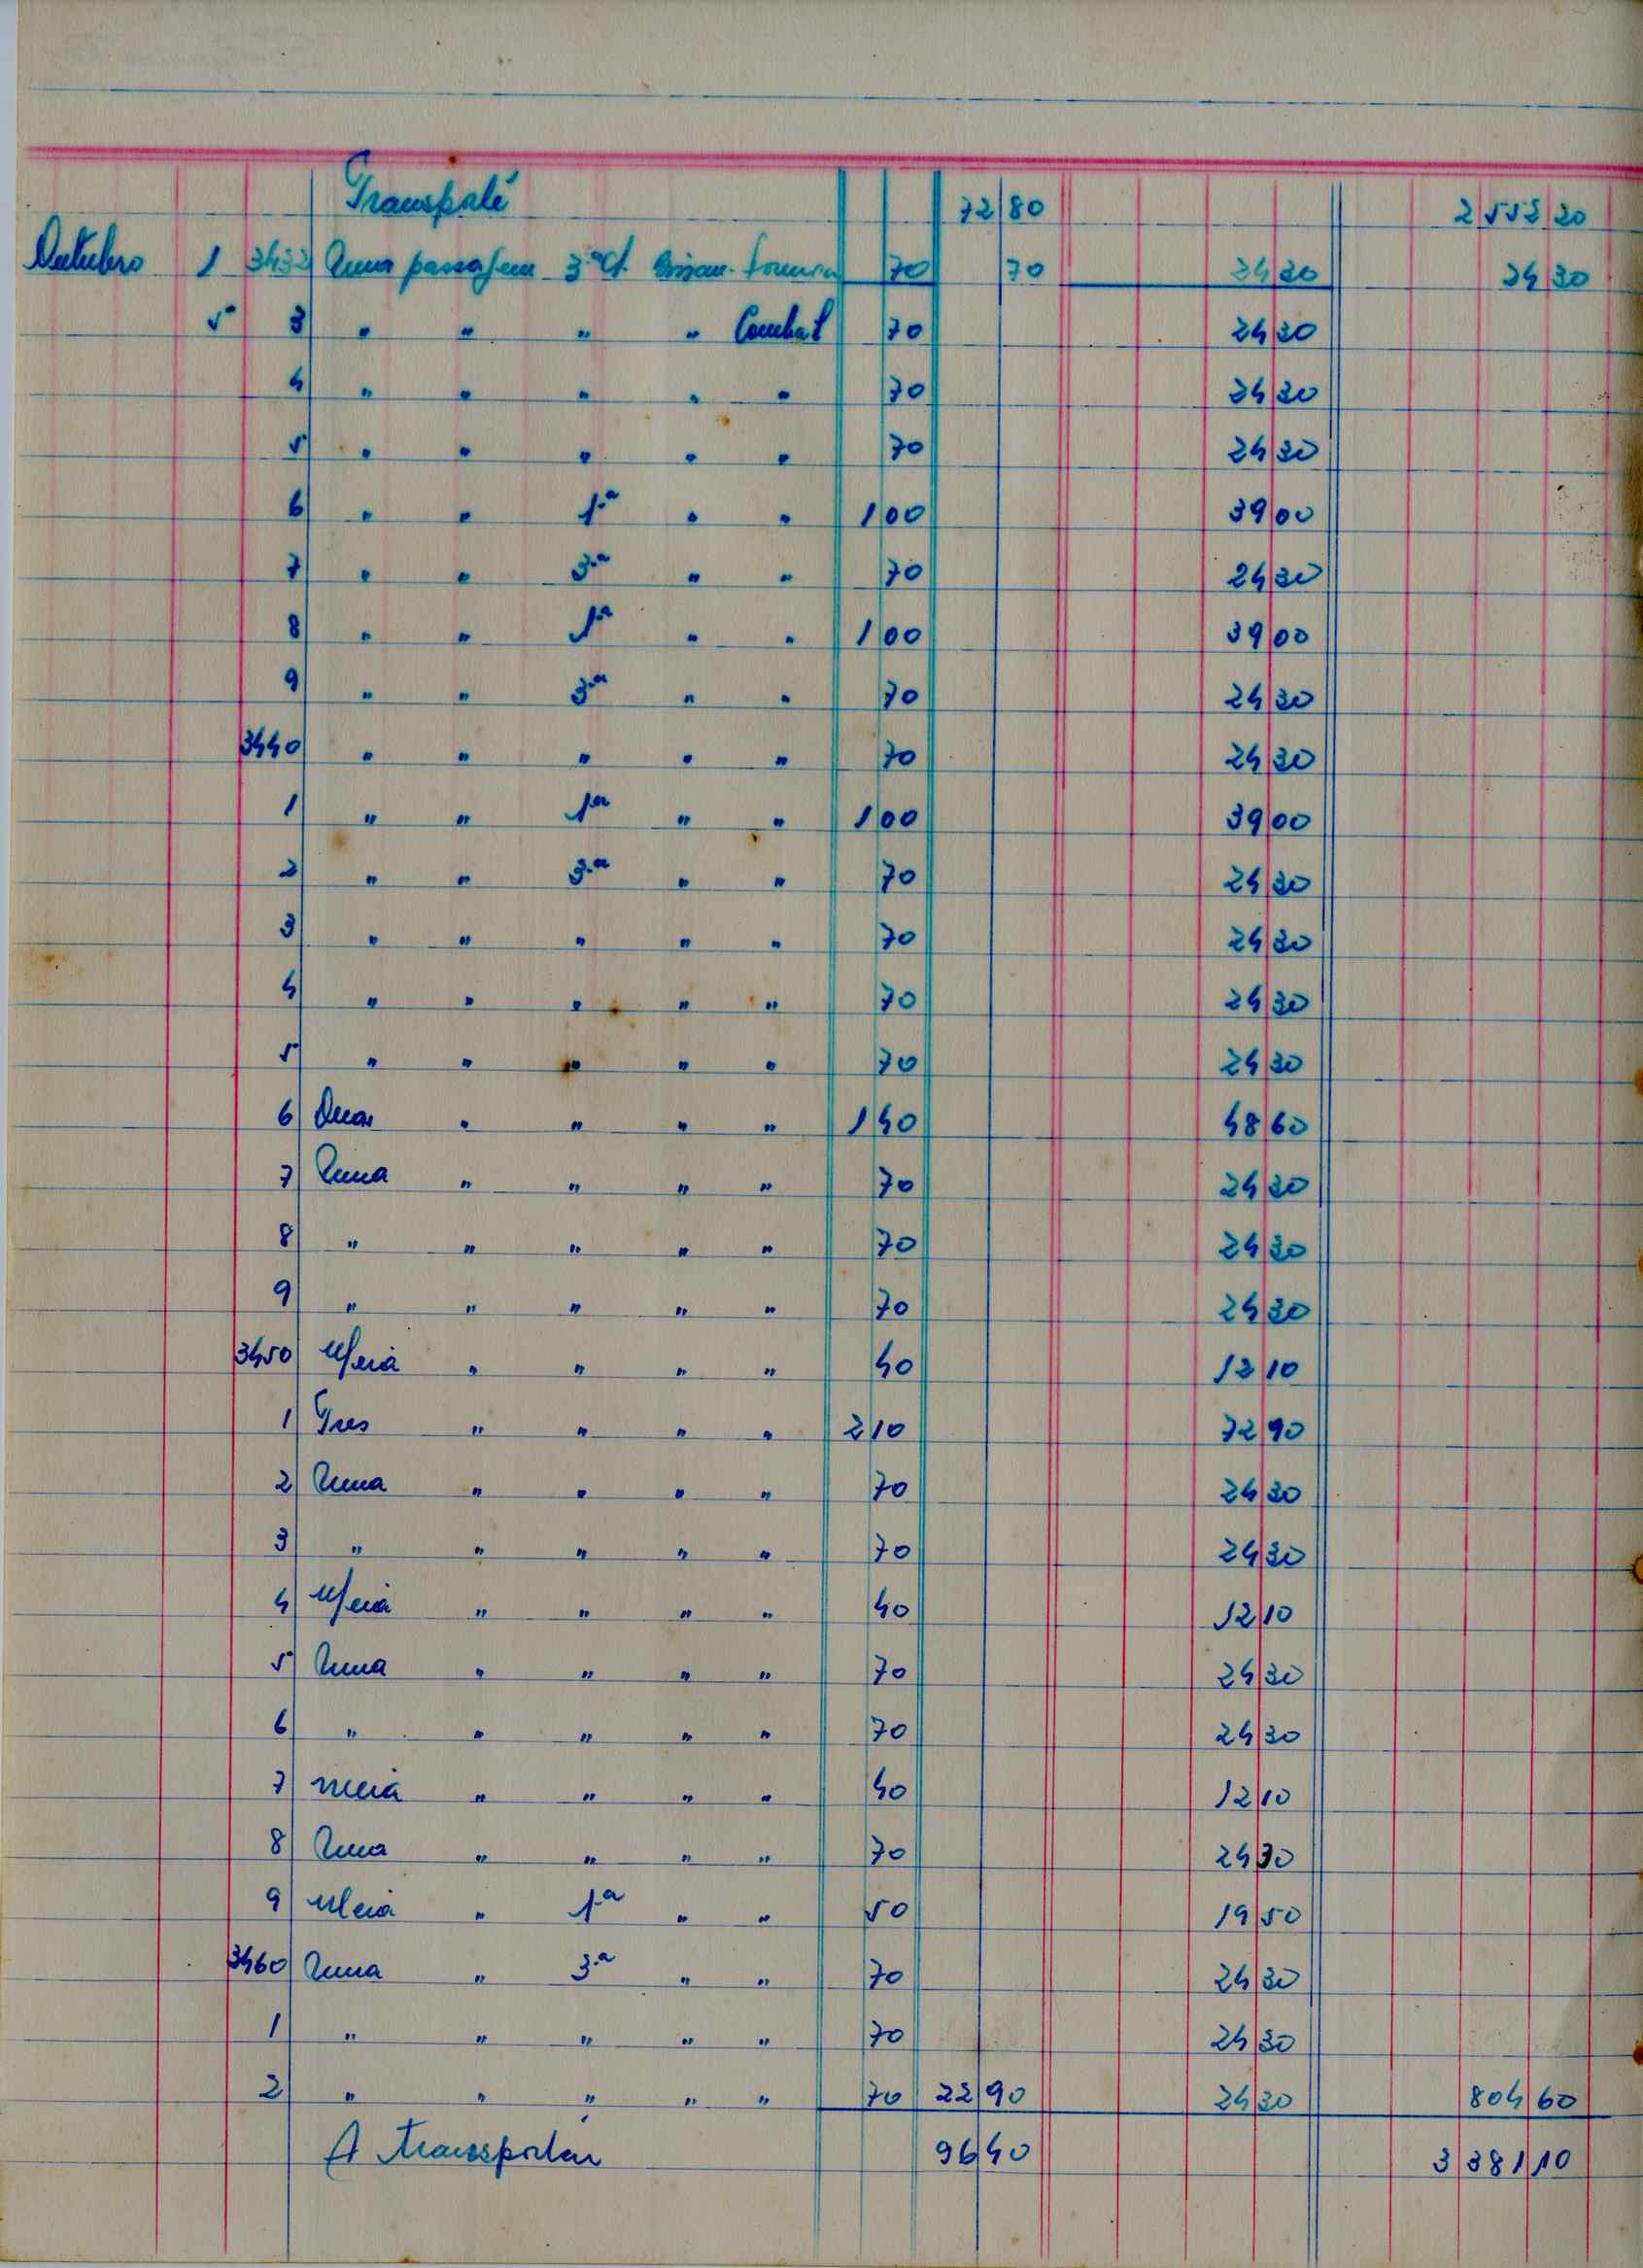 Transporte 72 80 2 552 20
Outubro 1 3432 Uma passagem 3ª cl. Bissau- 70 70 24 30 24 30
5 3 " " " " 70 24 30
4 " " " " " 70 24 30
5 " " " " " 70 24 30
6 " " 1ª " " 1 00 39 00
7 " " 3ª " " 70 24 30
8 " " 1ª " " 1 00 39 00
9 " " 3ª " " 70 24 30
3440 " " " " " 70 24 30
1 " " 1ª " " 1 00 39 00
2 " " 3ª " " 70 24 30
3 " " " " " 70 24 30
4 " " " " " 70 24 30
5 " " " " " 70 24 30
6 Duas " " " " 1 40 48 60
7 Uma " " " " 70 24 30
8 " " " " " 70 24 30
9 " " " " " 70 24 30
3450 Meia " " " " 40 12 10
1 Tres " " " " 2 10 72 90
2 Uma " " " " 70 24 30
3 " " " " " 70 24 30
4 Meia " " " " 40 12 10
5 Uma " " " " 70 24 30
6 " " " " " 70 24 30
7 meia " " " " 40 12 10
8 Uma " " " " 70 24 30
9 Meia " 1ª " " 50 19 50
3460 Uma " 3ª " " 70 24 30
1 " " " " " 70 24 30
2 " " " " " 70 22 90 24 30 804 60
A transportar 96 40 3 381 10